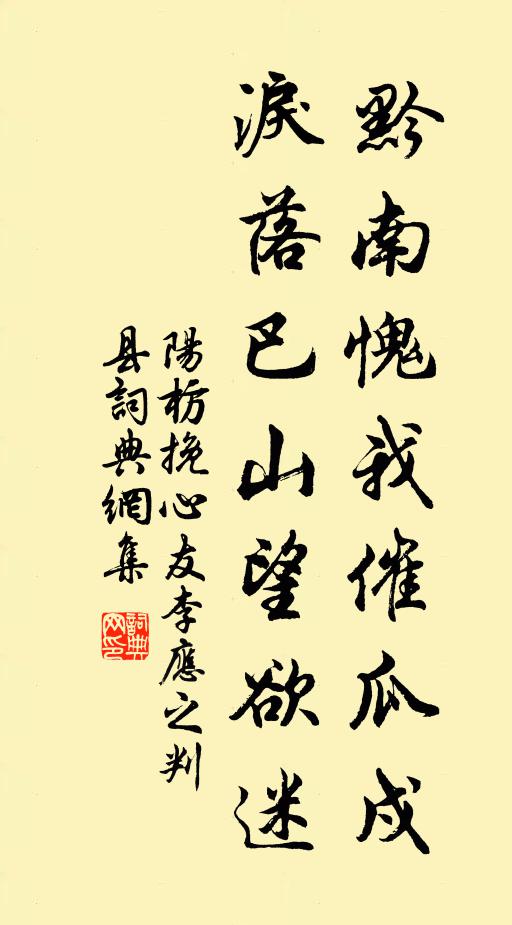 黔南愧我催瓜戍
淚落巴山望欲迷
陽枋挽心友李應之判
县詞典網集
詞典网印